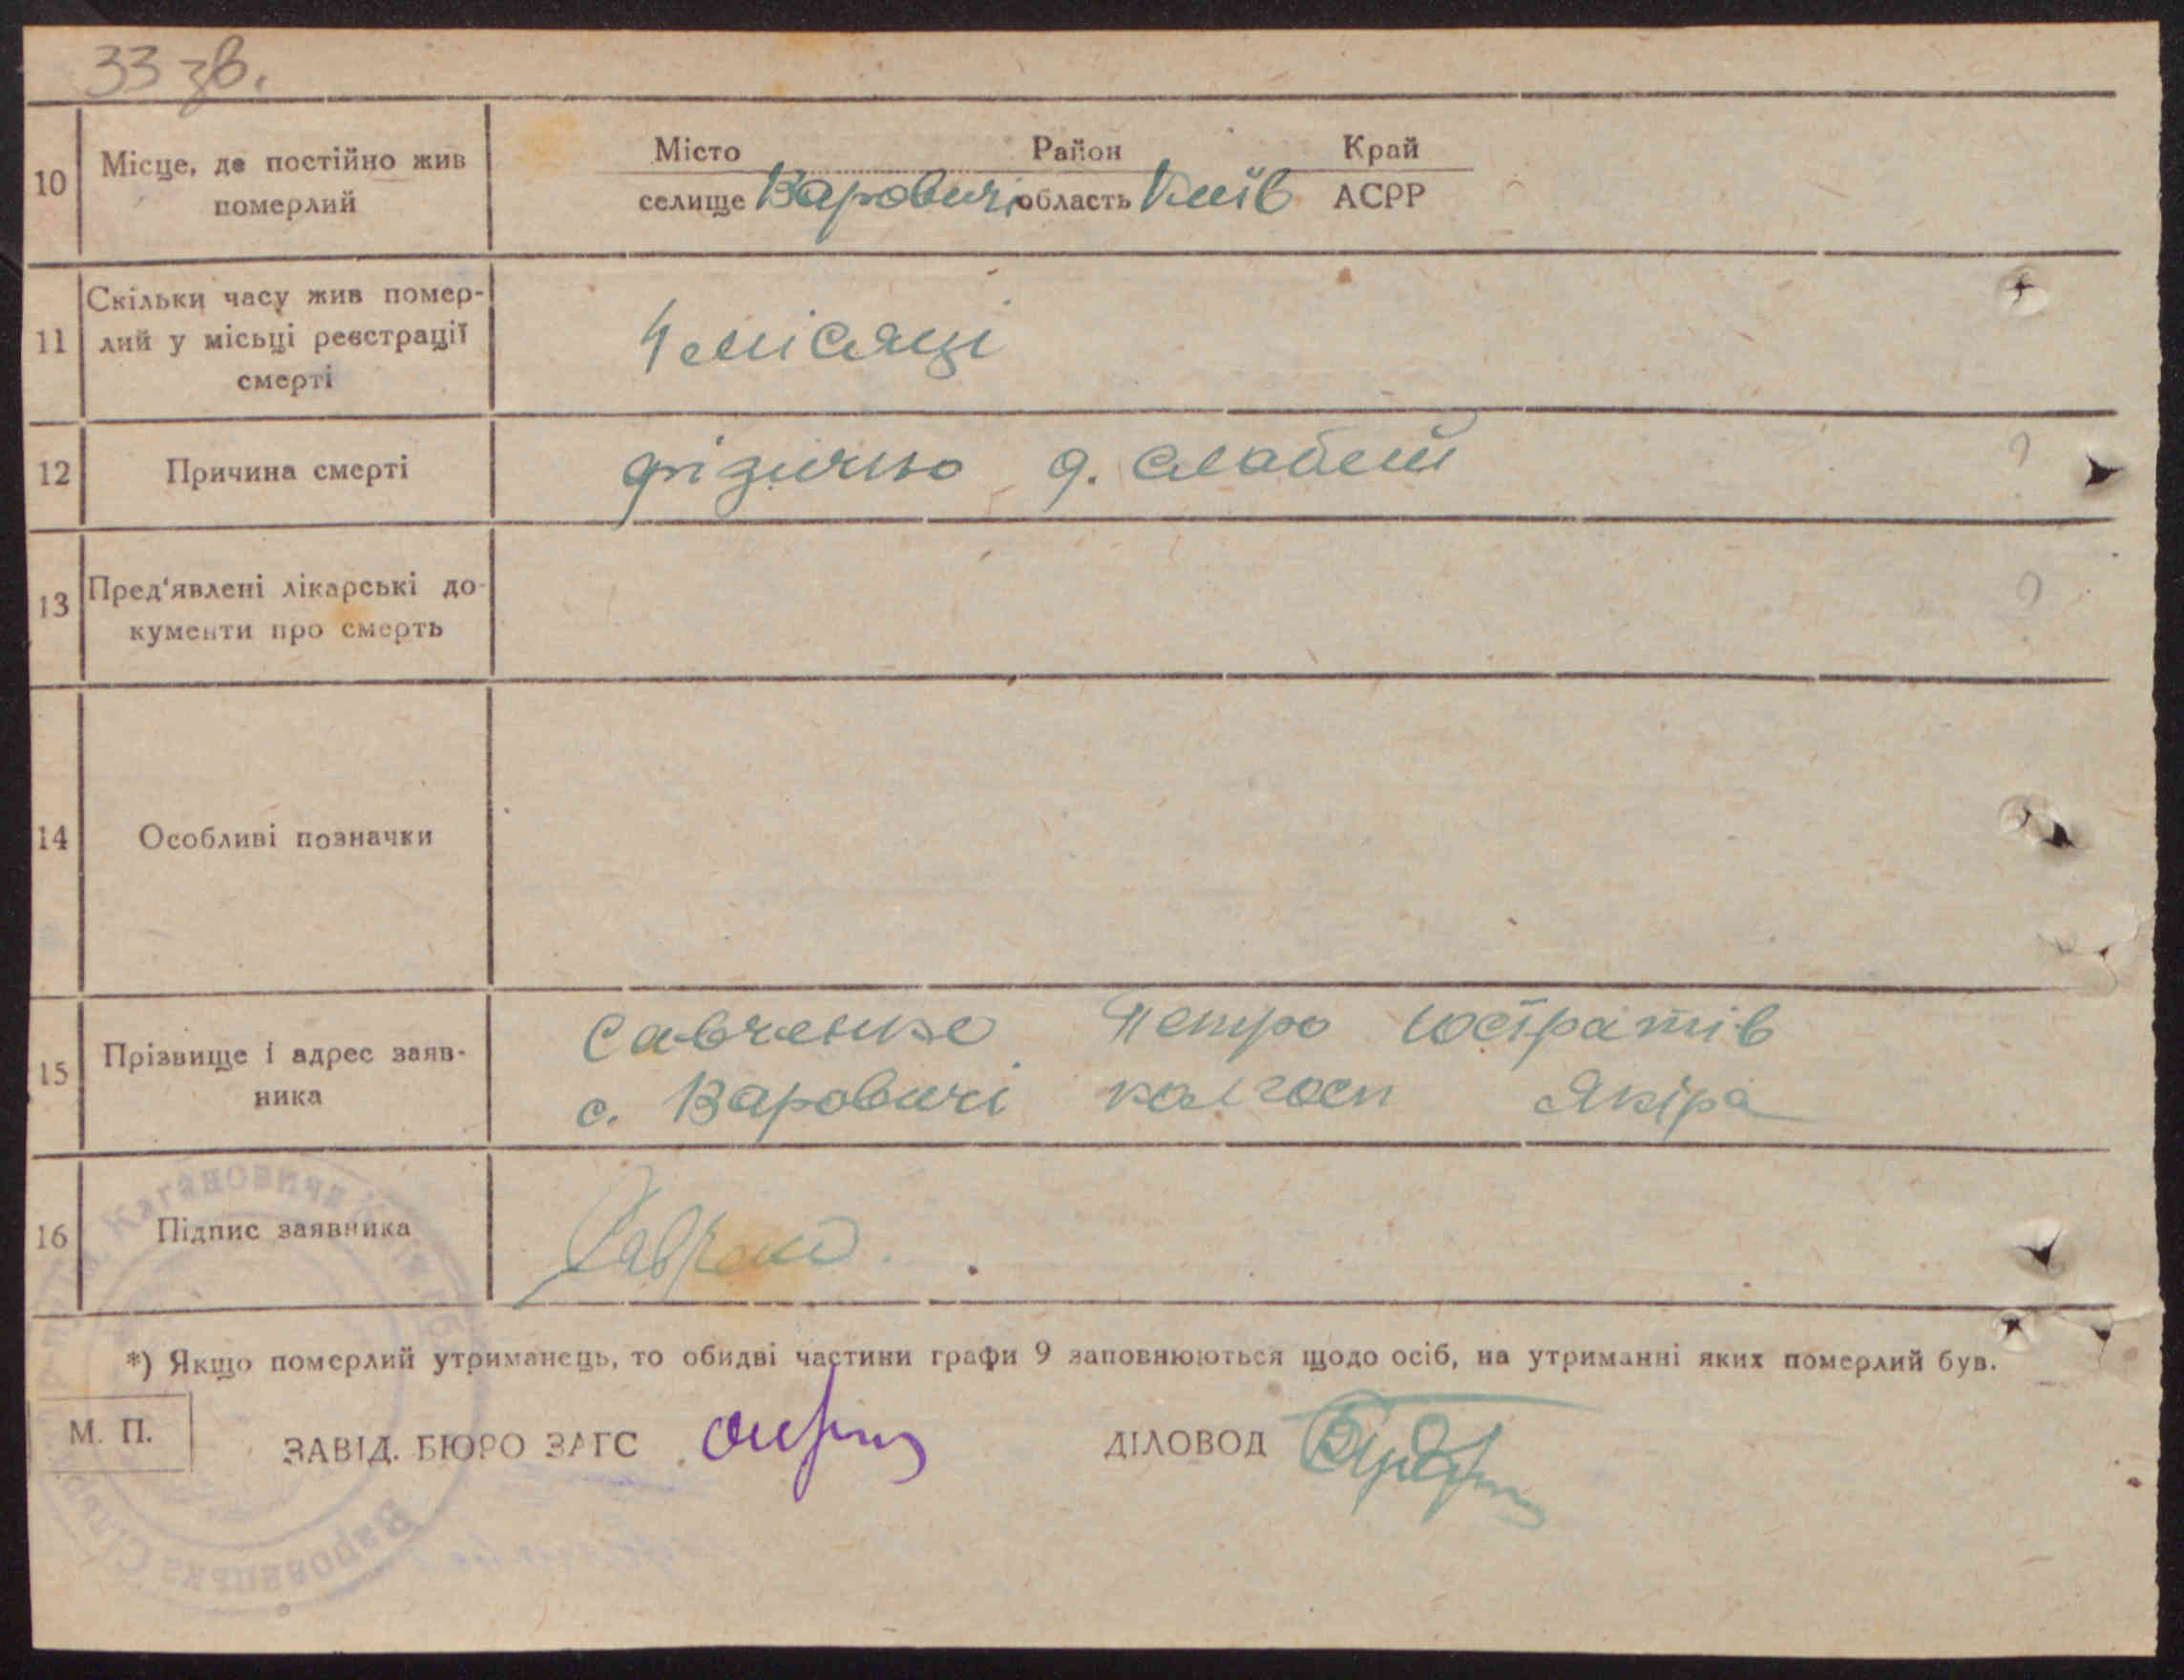 33 зв.
10 Місце, де постійно жив померлий
Місто Район Край
селище Варовичі область Київ АСРР
11 Скільки часу жив помер-
лий у місьці реєстрації
смерті
4 місяці
12 Причина смерті
фізично д. слабей
13 Пред'явлені лікарські до-
кументи про смерть
14 Особливі позначки
15 Прізвище і адрес заяв-
ника
Савченко Петро
с. Варовичі колгосп Якіра
16 Підпис заявника
*) Якщо померлий утриманець, то обидві частини графи 9 заповнюються щодо осіб, на утриманні яких померлий був.
М. П.
ЗАВІД. БЮРО ЗАГС
ДІЛОВОД